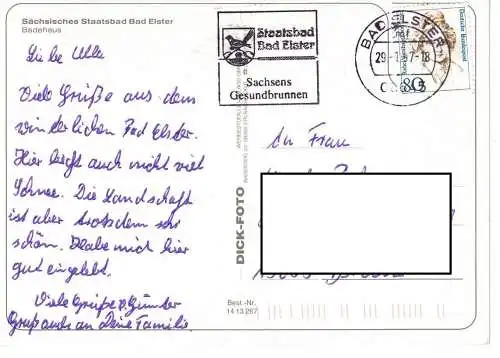 Sächsisches Staatsbad Bad Elster
Badehaus
Liebe Ulle
Viele Grüße aus dem
winterlichen Bad Elster.
Hier liegt auch nicht viel
Schnee. Die Landschaft
ist aber trotzdem sehr
schön. Habe mich hier
gut eingelebt.
Viele Grüße v. Günter
Gruß auch an Deine Familie
Staatsbad
Bad Elster
Sachsens
Gesundbrunnen
BAD ELSTER
Deutsche Bundespost
80
DICK-FOTO
An Frau
Best.-Nr.
14 13 267